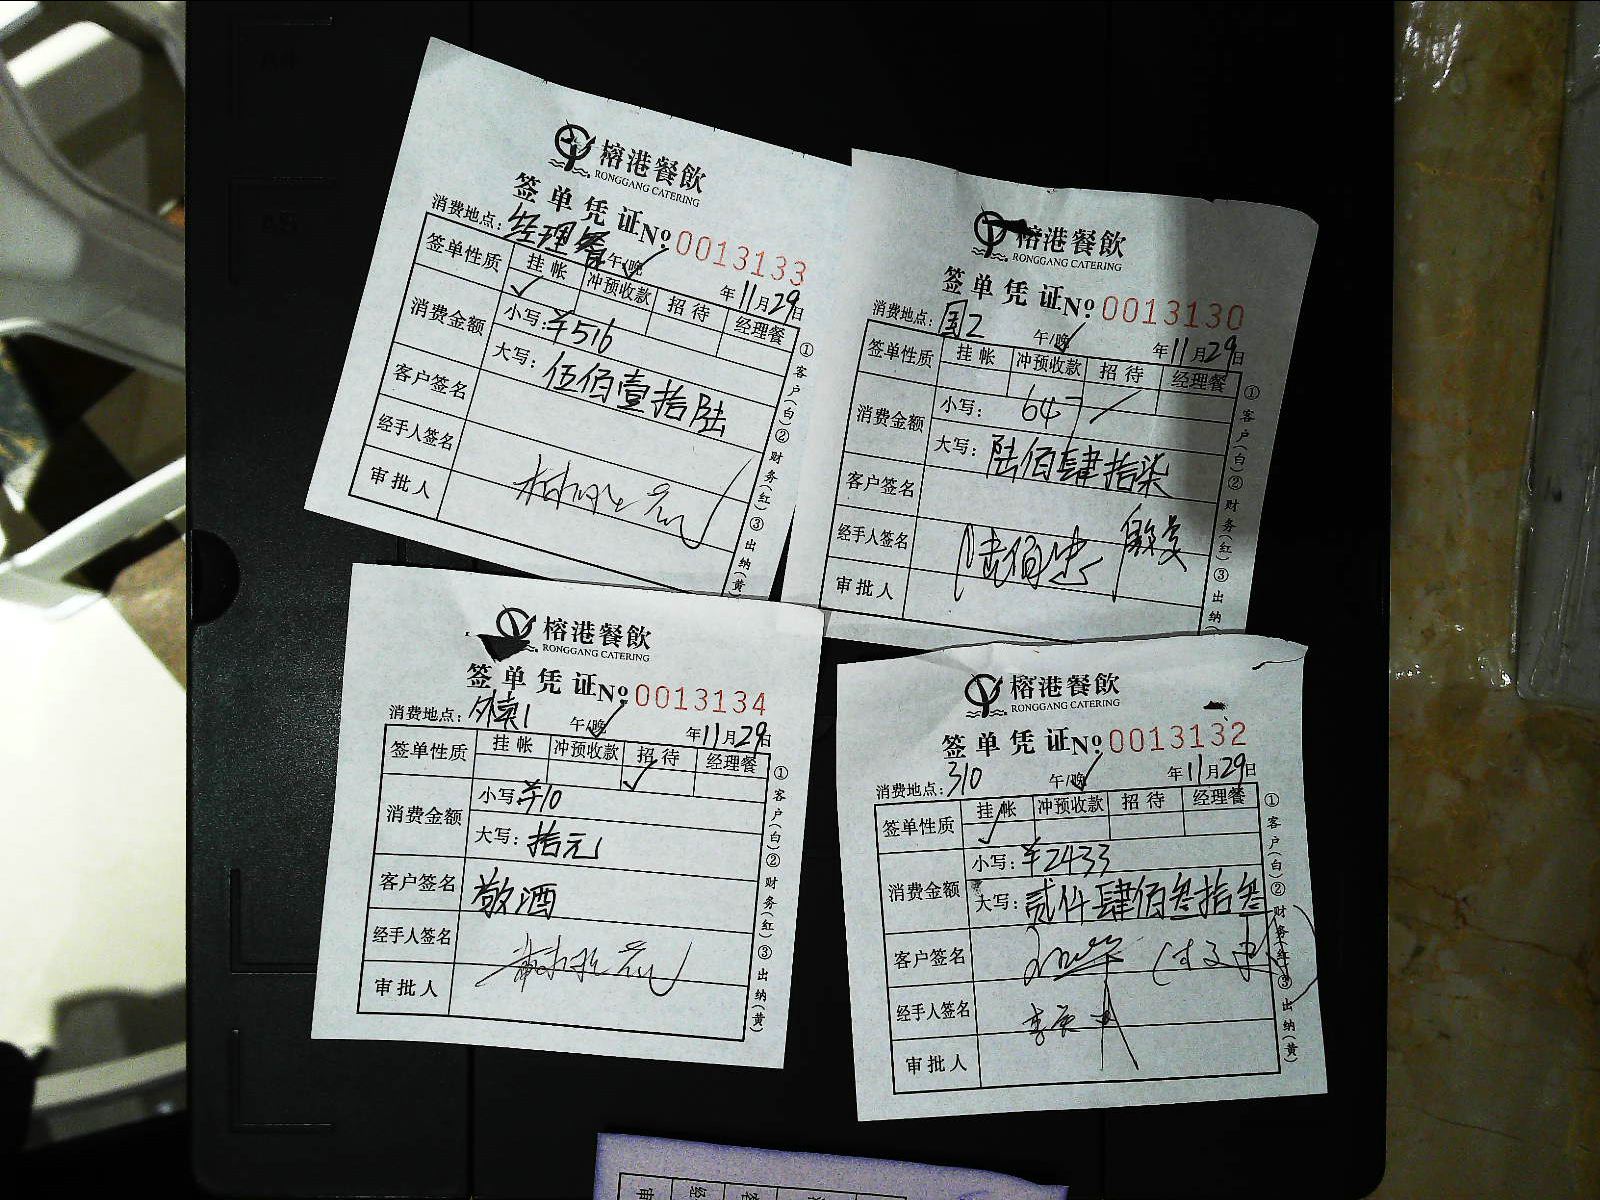 榕港餐飲
RONGGANG CATERING
签单凭证 No 0013133
消费地点：经理餐 午/晚 年11月29日
签单性质 挂帐 冲预收款 招待 经理餐
✓
消费金额 小写：¥516
大写：伍佰壹拾陆
客户签名
经手人签名
审批人
①客户(白)②财务(红)③出纳(黄)
榕港餐飲
RONGGANG CATERING
签单凭证 No 0013130
消费地点： 午/晚 年11月29日
签单性质 挂帐 冲预收款 招待 经理餐
消费金额 小写：647
大写：陆佰肆拾柒
客户签名
经手人签名
审批人
①客户(白)②财务(红)③出纳(
榕港餐飲
RONGGANG CATERING
签单凭证 No 0013134
消费地点：外卖1 午/晚 年11月29日
签单性质 挂帐 冲预收款 招待 经理餐
✓
消费金额 小写：¥10
大写：拾元
客户签名 敬酒
经手人签名
审批人
①客户(白)②财务(红)③出纳(黄)
榕港餐飲
RONGGANG CATERING
签单凭证 No 0013132
消费地点：310 午/晚 年11月29日
签单性质 挂帐 冲预收款 招待 经理餐
✓
消费金额 小写：¥2433
大写：贰仟肆佰叁拾叁
客户签名
经手人签名
审批人
①客户(白)②财务(红)③出纳(黄)